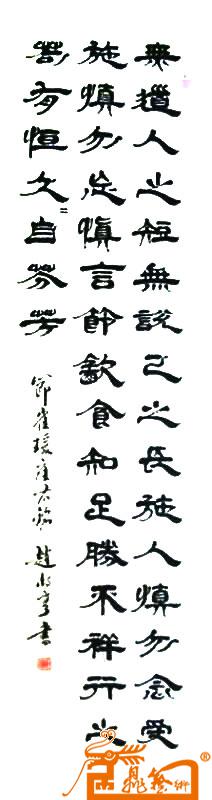 無道人之短無説己之長施人慎勿念受
施慎勿忘慎言節飲食知足勝不祥行之
苟有恒久〻自芬芳
節崔瑗座右銘 趙 書